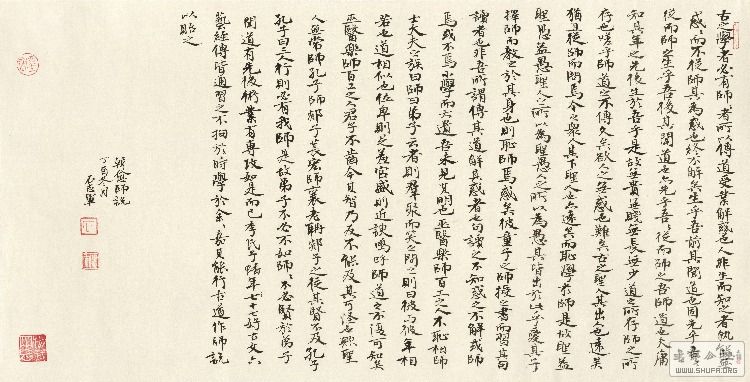 古之學者必有師師者所以傳道受業解惑也人非生而知之者孰能無
惑惑而不從師其為惑也終不解矣生乎吾前其聞道也固先乎吾吾
從而師之生乎吾後其聞道也亦先乎吾吾從而師之吾師道也夫庸
知其年之先後生於吾乎是故無貴無賤無長無少道之所存師之所
存也嗟乎師道之不傳久矣欲人之無惑也難矣古之聖人其出也遠矣
猶且從師而問焉今之眾人其下聖人也亦遠矣而恥學於師是故聖益
聖愚益愚聖人之所以為聖愚人之所以為愚其皆出於此乎愛其子
擇師而教之於其身也則恥師焉惑矣彼童子之師授之書而習其句
讀者也非吾所謂傳其道解其惑者也句讀之不知惑之不解或師
焉或不焉小學而大遺吾未見其明也巫醫樂師百工之人不恥相師
士大夫之族曰師曰弟子云者則羣聚而笑之問之則曰彼與彼年相
若也道相似也位卑則足羞官盛則近諛嗚呼師道之不復可知矣
巫醫樂師百工之人君子不齒今其智乃反不能及其可怪也歟聖
人無常師孔子師郯子萇宏師襄老聃郯子之徒其賢不及孔子
孔子曰三人行則必有我師是故弟子不必不如師師不必賢於弟子
聞道有先後術業有專攻如是而已李氏子蟠年十七好古文六
藝經傳皆通習之不拘於時學於余余嘉其能行古道作師說
以貽之
韓愈師說
丁酉冬月
WWW.SHUFA.ORG